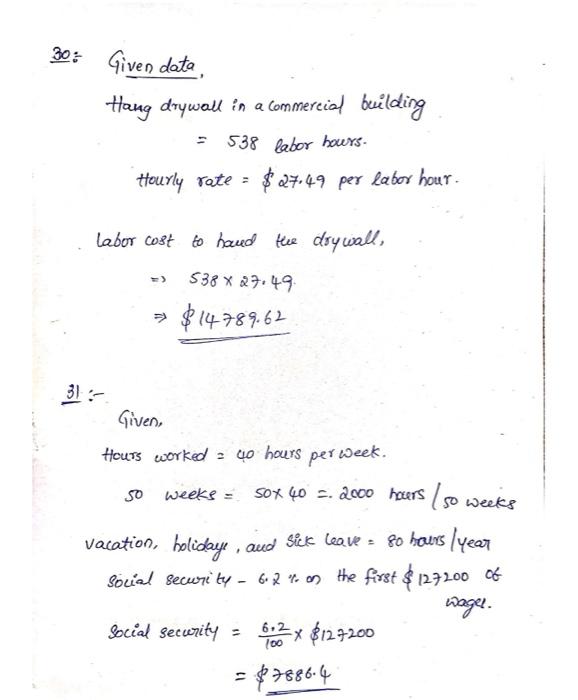 30:-
Given data,
Hang drywall in a commercial building
= 538 labor hours.
Hourly rate = $27.49 per labor hour.
Labor cost to hand the drywall,
=> 538 x 27.49
=> $14789.62
31:-
Given,
Hours worked = 40 hours per week.
50 weeks = 50x40 = 2000 hours/50 weeks
vacation, holidays, and Sick leave = 80 hours/year
Social security - 6.2% on the first $127200 of
wages.
Social security = 6.2/100 x $127200
= $7886.4